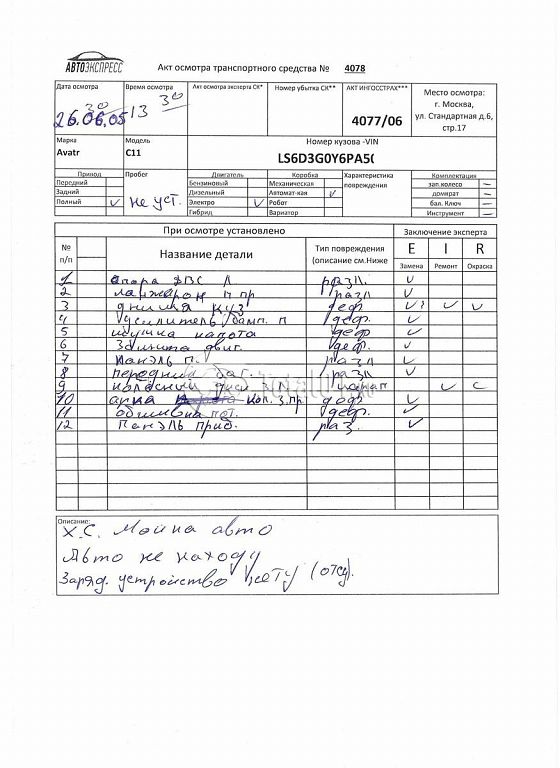 АВТОЭКСПРЕСС
Акт осмотра транспортного средства № 4078
Дата осмотра
Время осмотра
Акт осмотра эксперта СК*
Номер убытка СК**
АКТ ИНГОССТРАХ***
Место осмотра:
г. Москва,
ул. Стандартная д.6,
стр.17
26.06.05
13 30
4077/06
Марка
Модель
Номер кузова -VIN
Avatr
C11
LS6D3G0Y6PA5(
Привод
Пробег
Двигатель
Коробка
Характеристика
повреждения
Комплектация
Передний
Бензиновый
Механическая
зап.колесо –
Задний
Дизельный
Автомат-кая ✓
домкрат –
Полный ✓
не уст.
Электро ✓
Робот
бал. Ключ –
Гибрид
Вариатор
Инструмент –
При осмотре установлено
Заключение эксперта
№
п/п
Название детали
Тип повреждения
(описание см.Ниже
E I R
Замена Ремонт Окраска
1 опора ДВС Л разл. ✓
2 лонжерон п пр разл ✓
3 днища куз деф ✓? ✓ ✓
4 усилитель бамп. п деф. ✓
5 капота деф ✓
6 Защита двиг. деф. ✓
7 Панэль п. разл ✓
8 передний разл ✓
9 ✓
10 арка кол. з. пр. деф ✓
11 обшивка деф. ✓
12 Панэль приб. раз. ✓
Описание:
Х.С. Мойка авто
Авто не находу
Заряд. устройство нету (отсу).